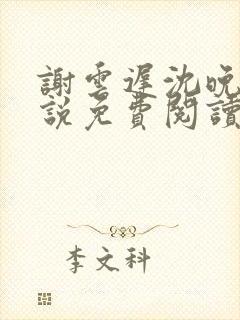 謝雲遲沈晚
說免費閱讀
李文科